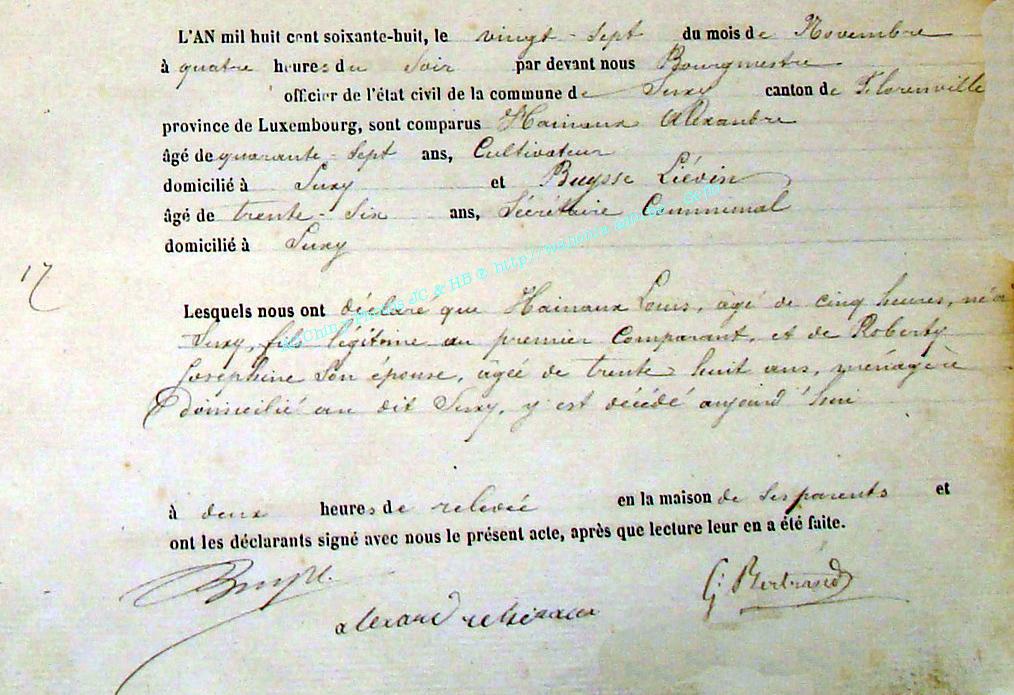 L'AN mil huit cent soixante-huit, le vingt-sept du mois de Novembre
à quatre heures du Soir par devant nous Bourgmestre
officier de l'état civil de la commune de Suxy canton de Florenville
province de Luxembourg, sont comparus Hainaux Alexandre
âgé de quarante-sept ans, Cultivateur
domicilié à Suxy et Buysse Liévin
âgé de trente-six ans, Sécrétaire Communal
domicilié à Suxy
17
Lesquels nous ont déclaré que Hainaux Louis, âgé de cinq heures, né à
Suxy, fils légitime du premier Comparant, et de Roberty
Joséphine Son épouse, âgée de trente huit ans, ménagère
domicilié au dit Suxy, y est décédé aujourd'hui
à deux heures de relevée en la maison de Ses parents et
ont les déclarants signé avec nous le présent acte, après que lecture leur en a été faite.
Buysse G. Bertrand
alexandre hainaux
JC & HB ® http//